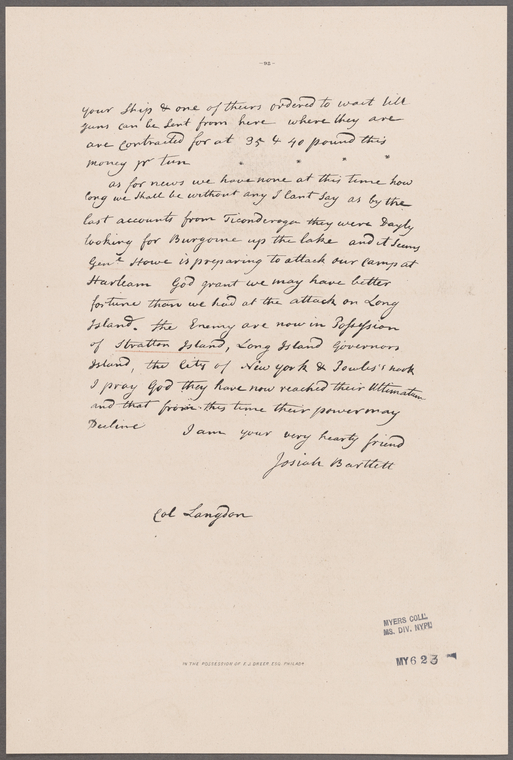 - 92 -
your Ship & one of theirs ordered to wait till
guns can be sent from here where they are
are contracted for at 35 & 40 pound this
money pr tun " " " "
as for news we have none at this time how
long we shall be without any I cant say as by the
last accounts from Ticonderoga they were Dayly
looking for Burgoine up the lake and it seems
Genl Howe is preparing to attack our camp at
Harleam God grant we may have better
fortune than we had at the attack on Long
Island. the Enemy are now in Possession
of Stratton Island, Long Island Governors
Island, the City of New York & Powles's hook
I pray God they have now reached their Ultimatum
and that from this time their power may
Decline I am your very hearty friend
Josiah Bartlett
Col Langdon
MYERS COLL.
MS. DIV. NYPL
MY 623
IN THE POSSESSION OF F. J. DREER ESQ. PHILADA.